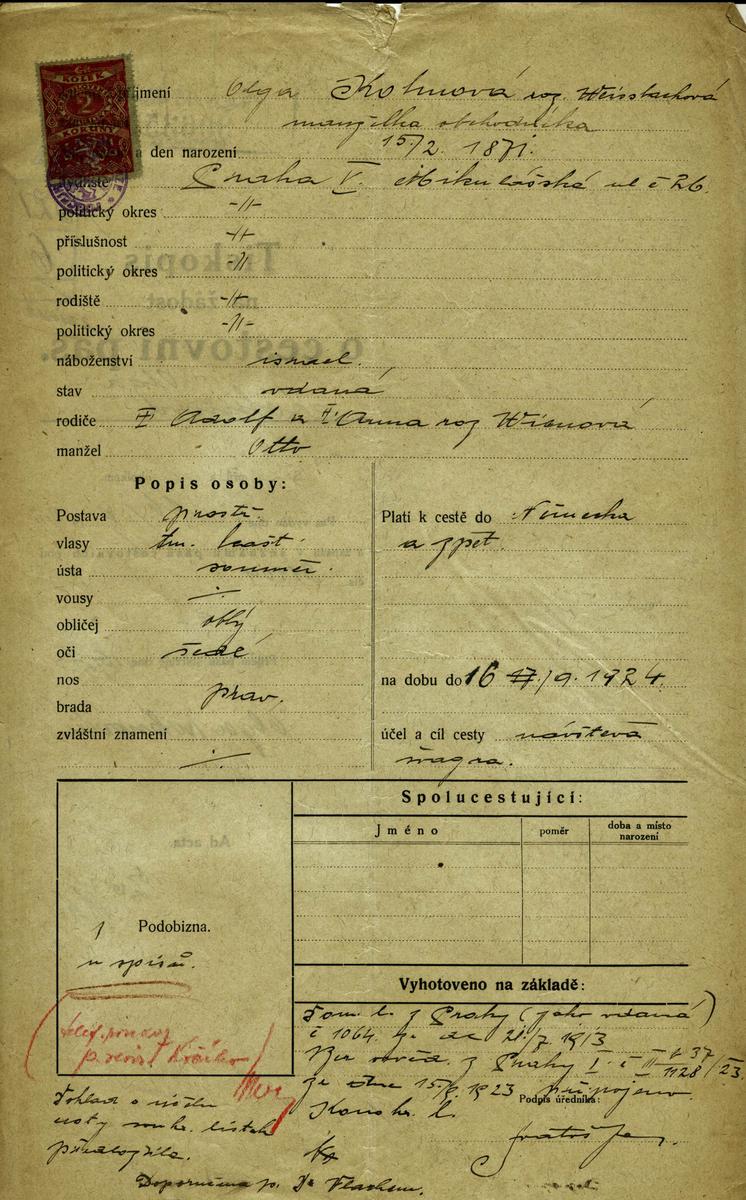 KOLEK
2
KORUNY
příjmení Olga Kohnová roz. Weissbachová
manželka obchodníka
a den narození 15/2. 1871.
bydliště Praha V. Mikulášská ul č 26.
politický okres -"-
příslušnost -"-
politický okres -"-
rodiště -"-
politický okres -"-
náboženství israel.
stav vdaná
rodiče Adolf a Anna roz Wienová
manžel Otto
Popis osoby:
Postava prostř.
vlasy tm. kašt.
ústa souměr.
vousy ÷
obličej oblý
oči šedé
nos
brada prav.
zvláštní znamení
÷
Platí k cestě do Německa
a zpět.
na dobu do 16 /9. 1924.
účel a cíl cesty návštěva
švagra.
Spolucestující:
Jméno poměr doba a místo narození
1 Podobizna.
u spisů.
Vyhotoveno na základě:
Dom. l. z Prahy (jako vdaná)
č 1064 ze dne 21/7 1913
z Prahy I. č II 1128/23
ze dne 1923 připojeno.
Podpis úředníka:
Doklad o účelu
cesty
předložila.
Doporučena p. Dr